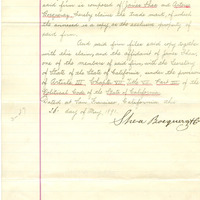 said firm is composed of James Shea and
Bocqueraz, hereby claims the trade mark, of which
the annexed is a copy, as the exclusive property of
said firm.
And said firm files said copy together
with this claim, and the affidavit of James Shea
one of the members of said firm, with the Secretary
of State of the State of California, under the provisions
of Article III, Chapter VII, Title VII, Part III of the
Political Code of the State of California.
Dated at San Francisco California this
28 day of May 1891.
Shea Bocqueraz & Co